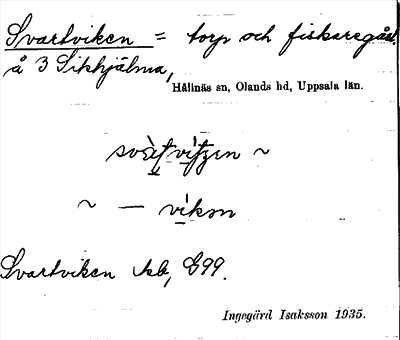 Svartviken = torp och fiskaregård.
å 3 Sikhjälma,
Hållnäs sn, Olands hd, Uppsala län.
~
~ — vikən
Svartviken Jkb, G99.
Ingegärd Isaksson 1935.